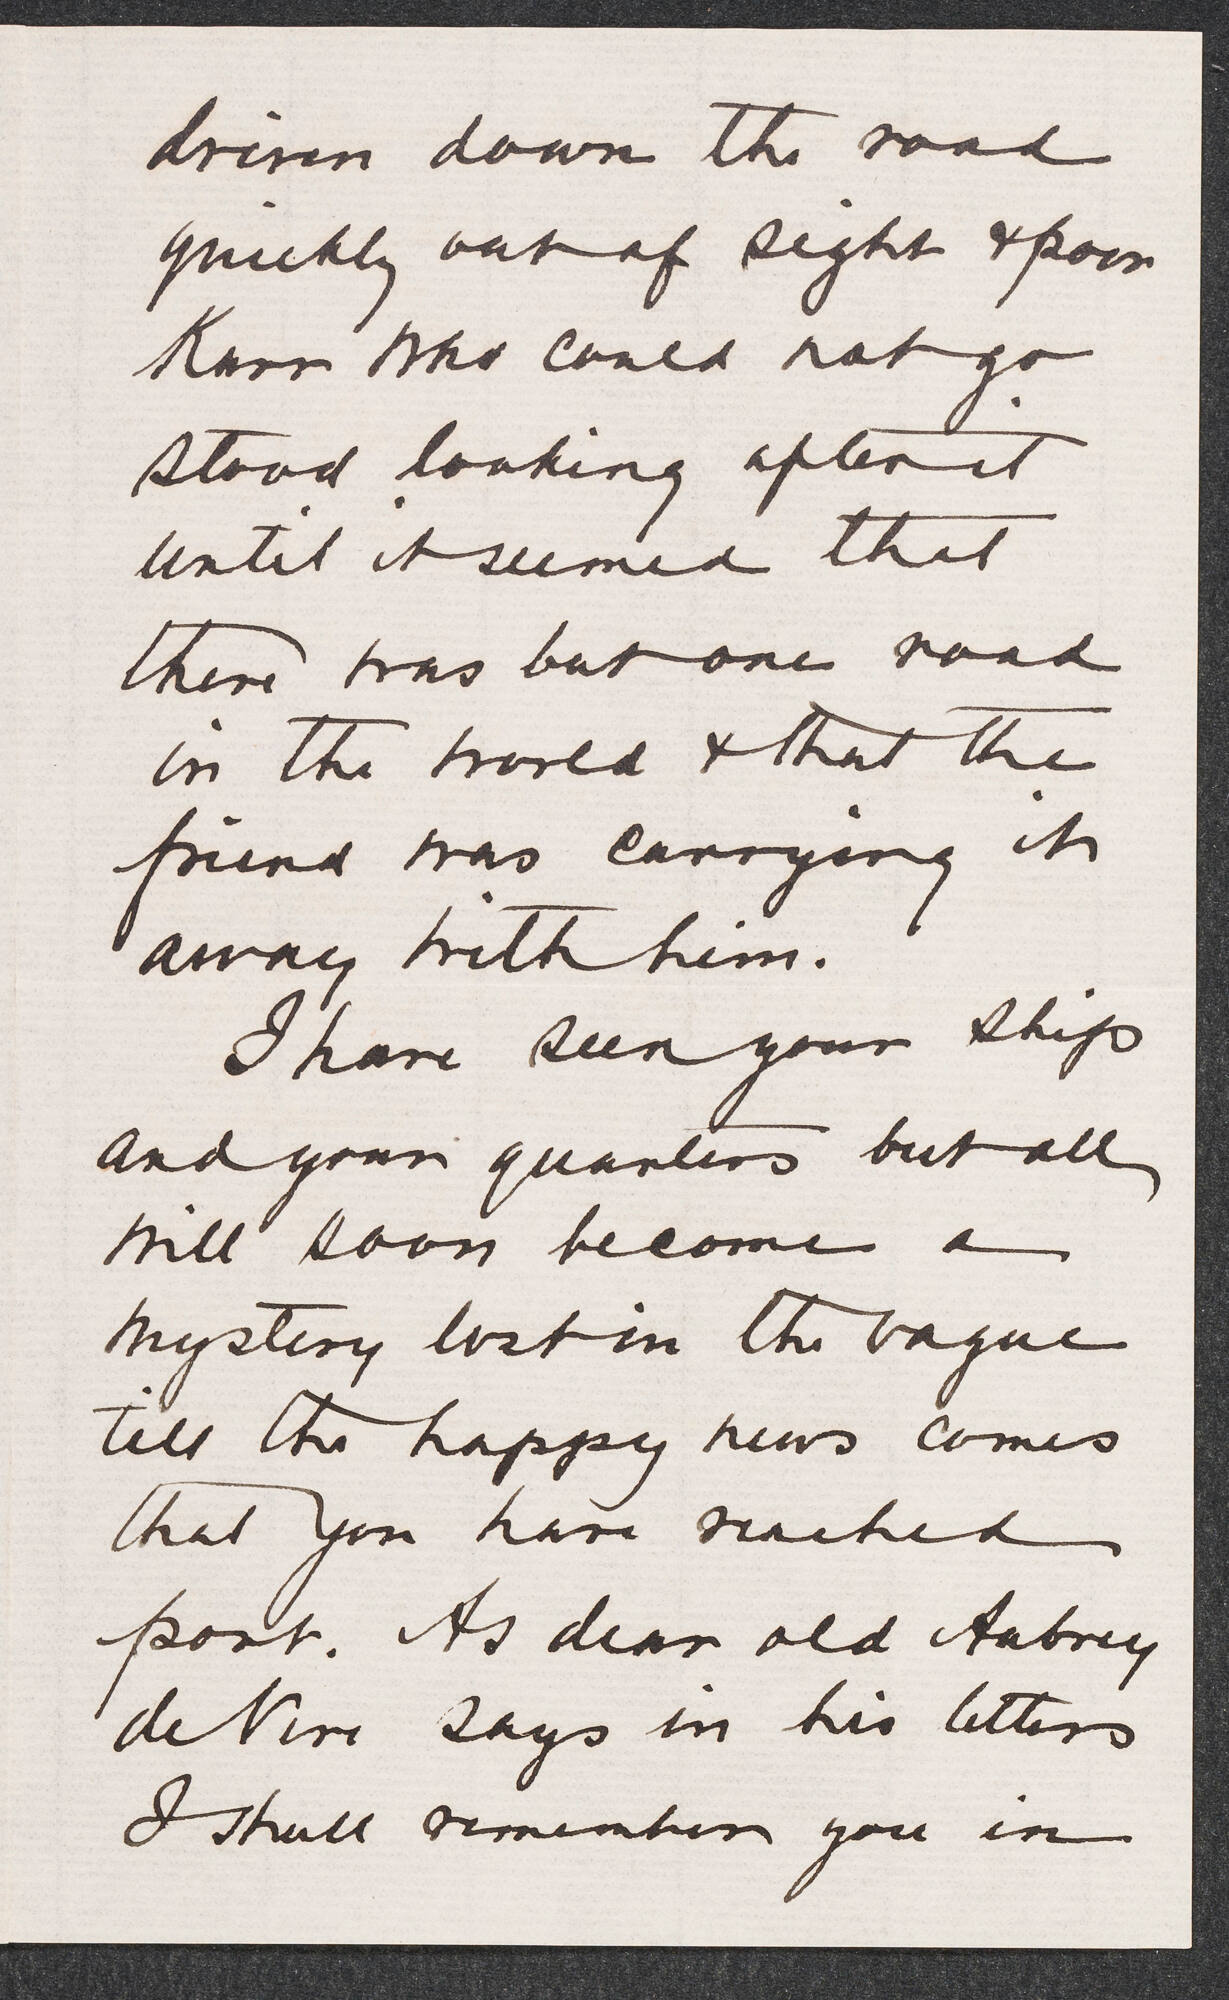 driven down the road
quickly out of sight & poor
Karr who could not go
stood looking after it
until it seemed that
there was but one road
in the world & that the
friend was carrying it
away with him.
I have seen your ship
and your quarters but all
will soon become a
mystery lost in the vague
till the happy news comes
that you have reached
port. As dear old Aubrey
de Vere says in his letters
I shall remember you in